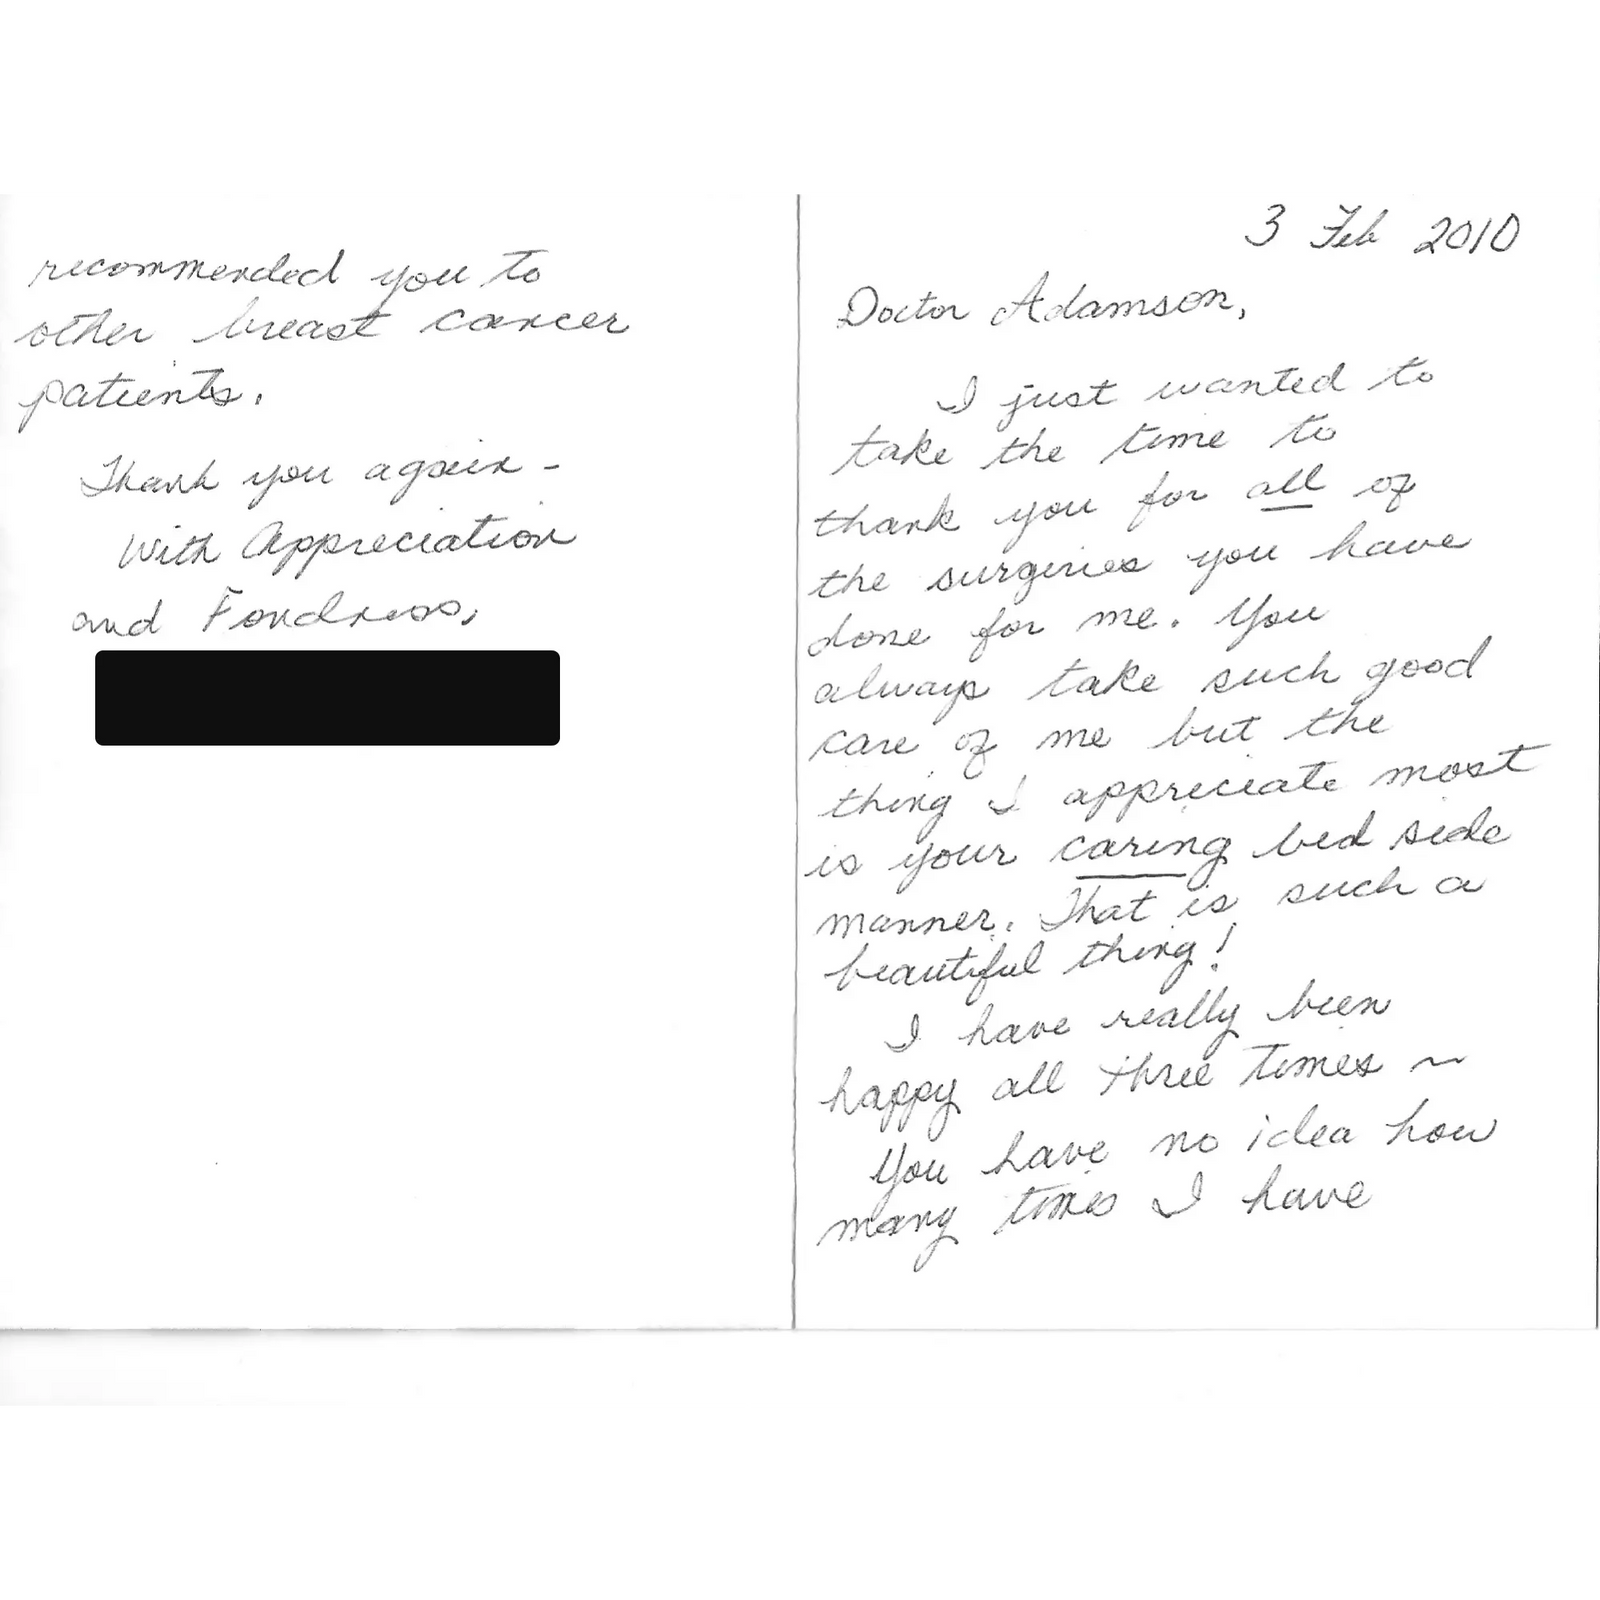 3 Feb 2010
Doctor Adamson,
I just wanted to
take the time to
thank you for all of
the surgeries you have
done for me. You
always take such good
care of me but the
thing I appreciate most
is your caring bed side
manner. That is such a
beautiful thing!
I have really been
happy all three times ~
You have no idea how
many times I have
recommended you to
other breast cancer
patients.
Thank you again -
With Appreciation
and Fondness,